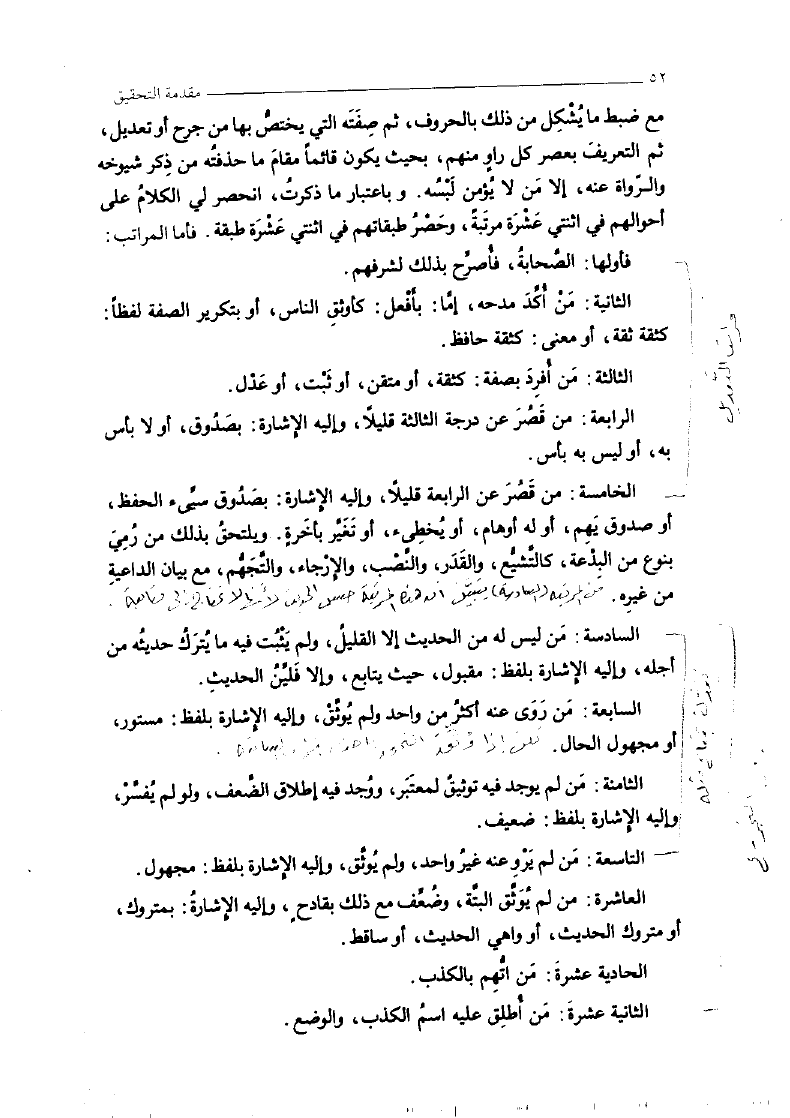 ٥٢ مقدمة التحقيق
مع ضبط ما يُشْكِل من ذلك بالحروف، ثم صِفَتَه التي يختصُّ بها من جرح أو تعديل،
ثم التعريفَ بعصر كل راوٍ منهم، بحيث يكون قائماً مقامَ ما حذفتُه من ذِكر شيوخه
والرّواة عنه، إلا مَن لا يُؤمن لَبْسُه. وباعتبار ما ذكرتُ، انحصر لي الكلامُ على
أحوالهم في اثنتي عَشْرَة مرتَبةً، وحَصْرُ طبقاتهم في اثنتي عَشْرَة طبقة. فأما المراتب:
فأولها: الصَّحابةُ، فأُصرِّح بذلك لشرفهم.
الثانية: مَنْ أُكِّدَ مدحه، إمَّا: بأَفْعل: كأوثقِ الناس، أو بتكرير الصفة لفظاً:
كثقة ثقة، أو معنى: كثقة حافظ.
الثالثة: مَن أُفرِدَ بصفة: كثقة، أو متقن، أو ثَبْت، أو عَدْل.
الرابعة: من قَصُرَ عن درجة الثالثة قليلًا، وإليه الإشارة: بصَدُوق، أو لا بأس
به، أو ليس به بأس.
الخامسة: من قَصُرَ عن الرابعة قليلًا، وإليه الإشارة: بصَدُوق سيِّىء الحفظ،
أو صدوق يَهِم، أو له أوهام، أو يُخطِىء، أو تَغَيَّر بأَخَرةٍ. ويلتحقُ بذلك من رُمِيَ
بنوع من البِدْعة، كالتَشيُّع، والقَدَر، والنَّصْب، والإِرْجاء، والتَّجَهُّم، مع بيان الداعيةِ
من غيرِه.
السادسة: مَن ليس له من الحديث إلا القليلُ، ولم يَثْبُت فيه ما يُترَكُ حديثُه من
أجله، وإليه الإشارة بلفظ: مقبول، حيث يتابع، وإلا فَليِّنُ الحديثِ.
السابعة: مَن رَوَى عنه أكثرُ من واحد ولم يُوثَّقْ، وإليه الإشارة بلفظ: مستور،
أو مجهول الحال.
الثامنة: مَن لم يوجد فيه توثيقٌ لمعتبَر، ووُجد فيه إطلاق الضَّعف، ولو لم يُفسَّرْ،
وإليه الإشارة بلفظ: ضعيف.
التاسعة: مَن لم يَرْوِ عنه غيرُ واحد، ولم يُوثَّق، وإليه الإشارة بلفظ: مجهول.
العاشرة: من لم يُوَثَّق البتَّة، وضُعِّف مع ذلك بقادحٍ، وإليه الإشارةُ: بمتروك،
أو متروك الحديث، أو واهي الحديث، أو ساقط.
الحادية عشرةَ: مَن اتُّهِم بالكذب.
الثانية عشرةَ: مَن أُطلِق عليه اسمُ الكذب، والوضع.